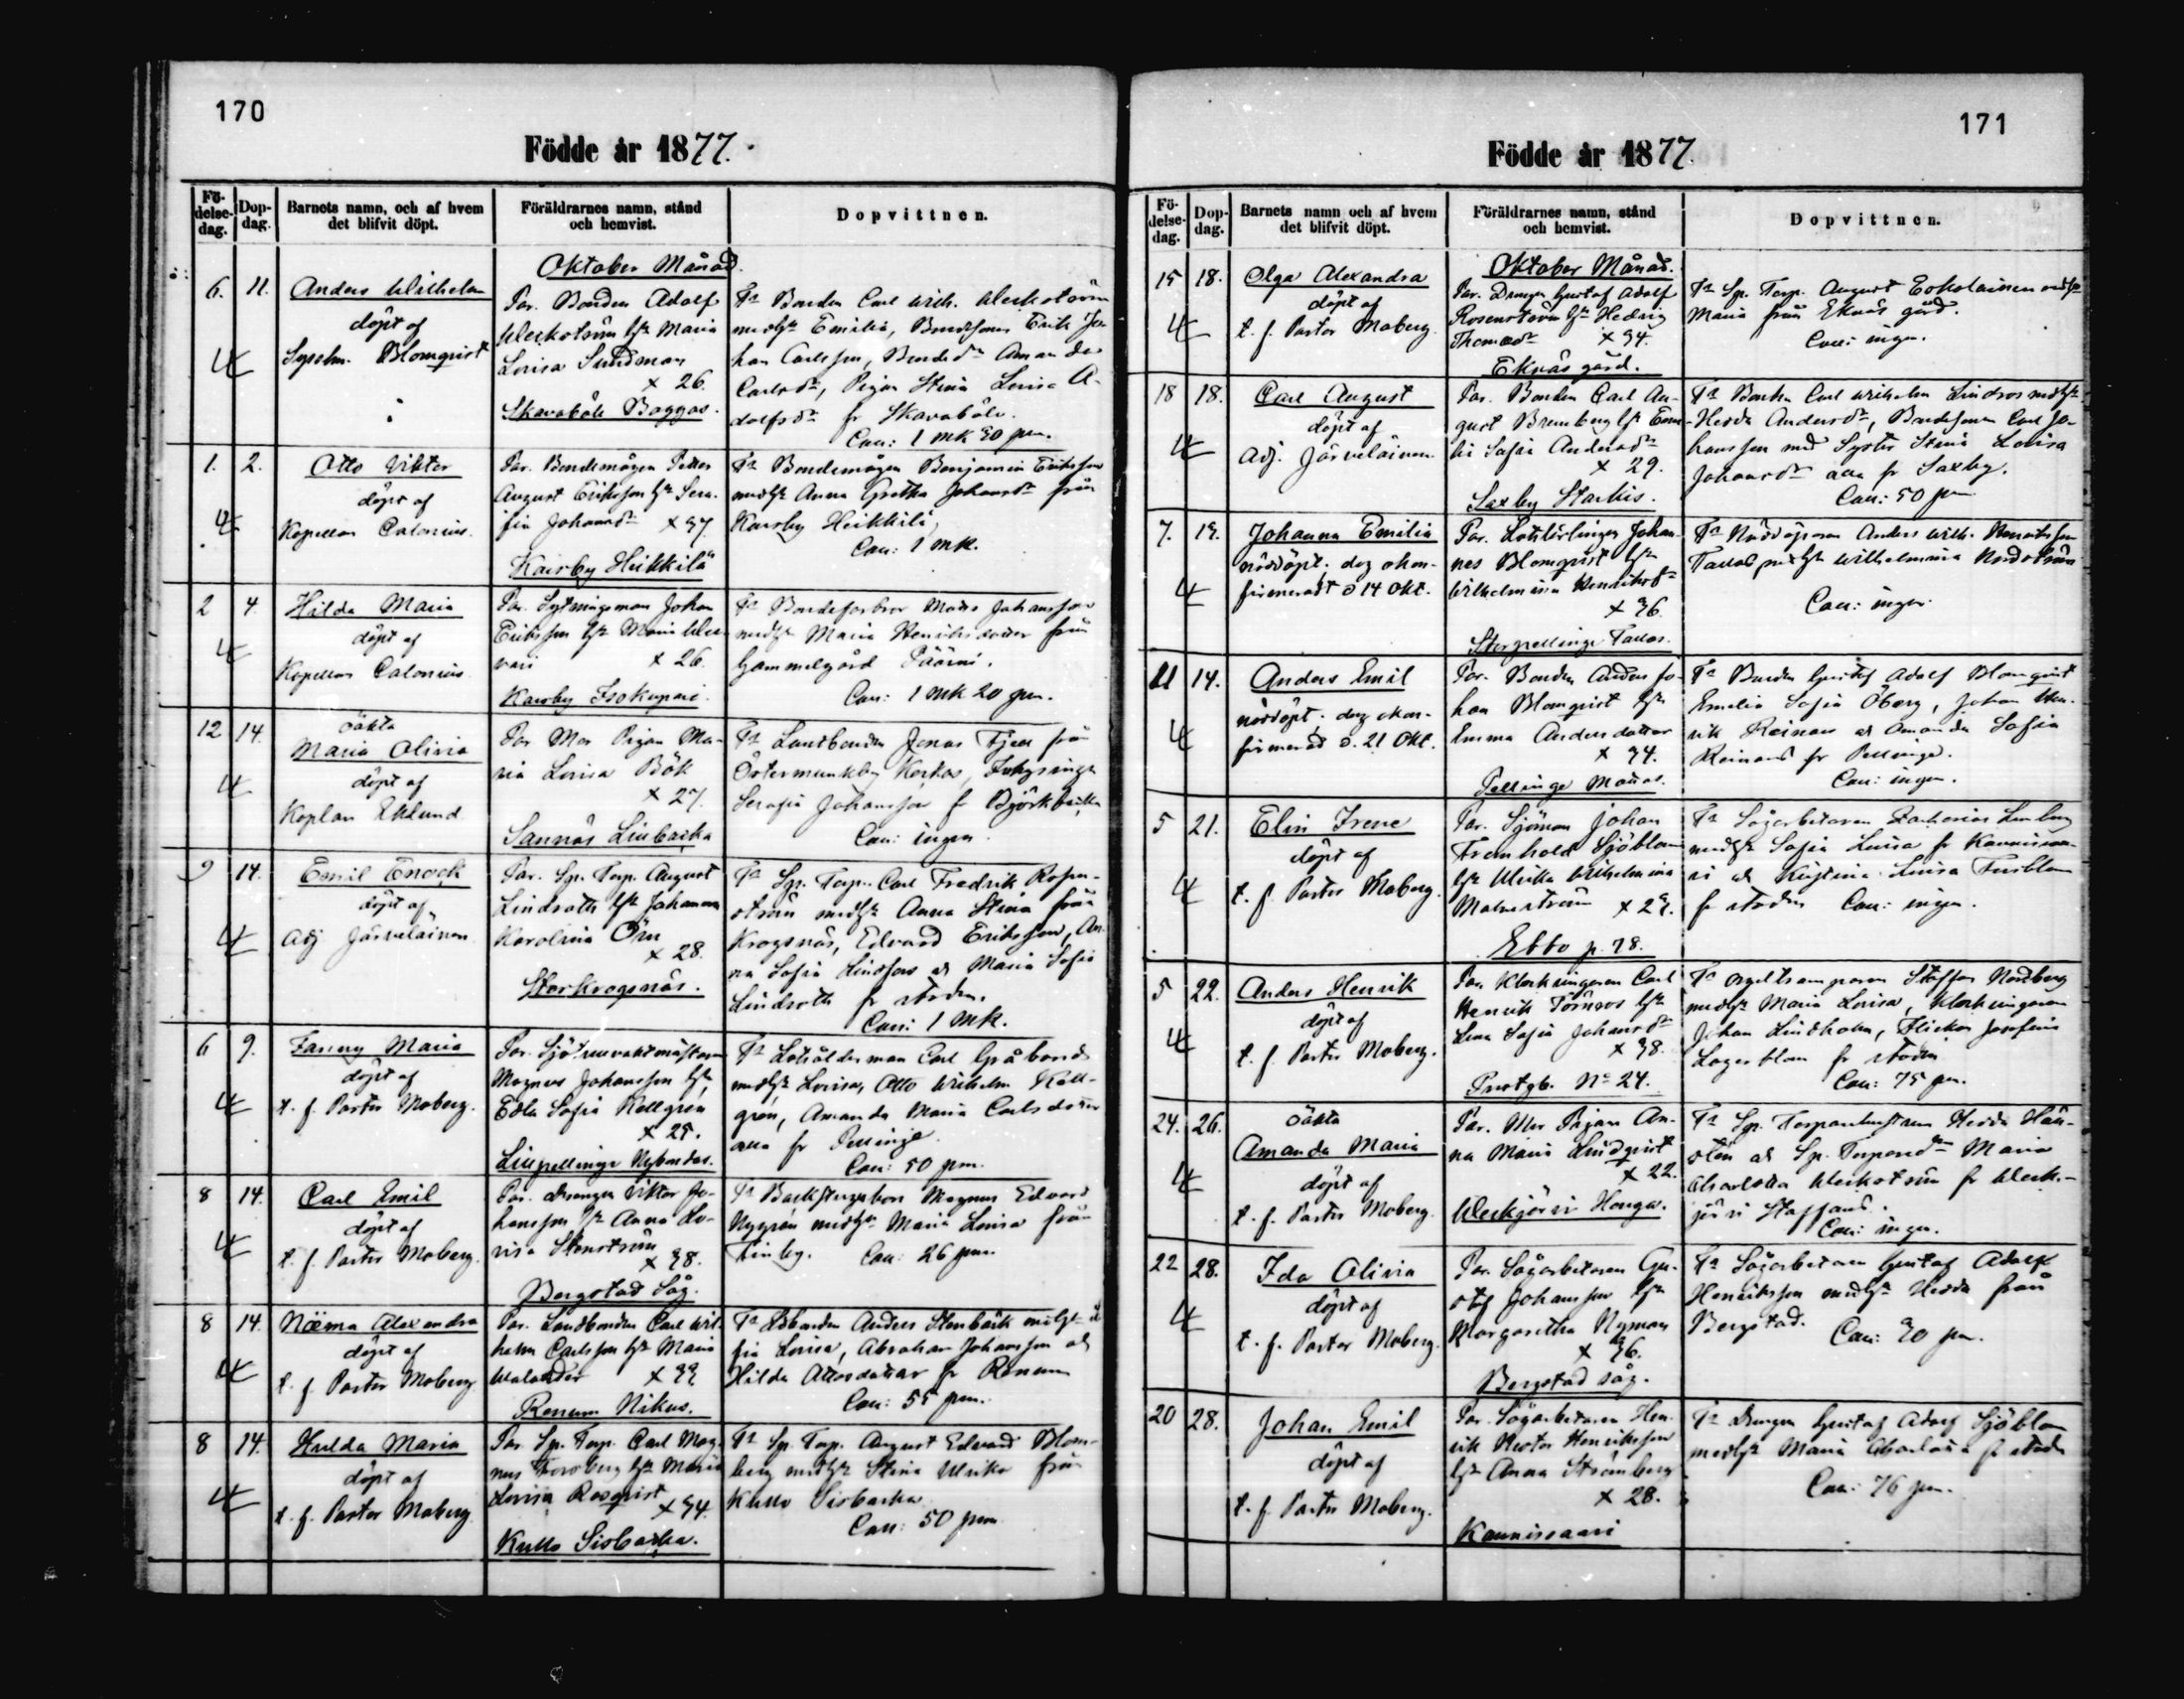 170
Födde år 1877.
Fö-
delse-
dag.
Dop-
dag.
Barnets namn, och af hvem
det blifvit döpt.
Föräldrarnes namn, stånd
och hemvist.
Dopvittnen.
Oktober Månad.
6. 11.
Anders Wilhelm
döpt af
Sysslm. Blomqvist
Par. Bonden Adolf
Weckström hst Maria
Lovisa Sundman
x 26.
Skavaböle Baggas.
Fa Bonden Carl Wilh. Weckström
medhst Emilia, Bondesonen Erik Jo-
han Carlsson, Bondedr Amanda
Carlsdr, Pigan Stina Lovisa A-
dolfsdr fr Skavaböle.
Can: 1 mk 30 pm.
1. 2.
Otto Viktor
döpt af
Kapellan Calonius.
Par. Bondemågen Petter
August Eriksson hst Sera-
fia Johansdr x 37.
Kairby Heikkilä
Fa Bondemågen Benjamin Eriksson
medhst Anna Gretha Johansdr från
Kairby Heikkilä,
Can: 1 mk.
2 4.
Hilda Maria
döpt af
Kapellan Calonius
Par. Sytningsman Johan
Eriksson hst Maria
x 26.
Kairby Isokupari.
Fa Bondefarbror Mats Johansson
medhst Maria Henriksdotter från
Gammelgård Päärni.
Can: 1 mk 20 pm.
12 14.
Oäkta
Maria Olivia
döpt af
Kaplan Eklund
Par Mor Pigan Ma-
ria Lovisa Bök
x 27.
Sannäs Linbacka
Fa Landbonden Jonas från
Östermunkby Inhysinge
Serafia Johansson fr
Can: ingen
9 14.
Emil Enock
döpt af
Adj Järveläinen
Par. Sp. Torp. August
Lindroth hst Johanna
Karolina Örn
x 28.
Storkrogsnäs.
Fa Sp. Torp. Carl Fredrik Rosen-
ström medhst Anna Stina från
Krogsnäs, Edvard Eriksson, An-
na Sofia Lindfors och Maria Sofia
Lindroth fr staden.
Can: 1 mk.
6 9.
Fanny Maria
döpt af
t. f. Pastor Moberg.
Par. Sjötullvaktmästaren
Magnus Johansson hst
Edla Sofia Kellgren
x 25.
Lillpellinge Nybondas.
Fa Lotsålderman Carl Gråbonds
medhst Lovisa, Otto Wilhelm Käll-
gren, Amanda Maria Carlsdotter
alla fr Pellinge.
Can: 50 pm.
8 14.
Carl Emil
döpt af
t. f. Pastor Moberg.
Par. Drengen Viktor Jo-
hansson hst Anna Lo-
visa Stenström
x 38.
Bergstad Såg.
Fa Backstugubon Magnus Edvard
Nygrén medhst Maria Lovisa från
Tinby. Can: 26 pm.
8 14.
Naëma Alexandra
döpt af
t. f. Pastor Moberg
Par. Landbonden Carl Wil-
helm Carlsson hst Maria
Walander x 33.
Renum Nikus.
Fa Ldbonden Anders Stenbäck medhst
Lovisa, Abraham Johansson och
Hilda Attosdottrar fr Renum
Can: 55 pm.
8 14.
Hulda Maria
döpt af
t. f. Pastor Moberg
Par. Sp. Torp. Carl Mag-
nus Forsberg hst Maria
Lovisa Rosqvist
x 34.
Kullo Sisbacka.
Fa Sp. Torp. August Edvard Blom-
berg medhst Stina Ulrika från
Kullo Sisbacka
Can: 50 pm
171
Födde år 1877.
Fö-
delse-
dag.
Dop-
dag.
Barnets namn och af hvem
det blifvit döpt.
Föräldrarnes namn, stånd
och hemvist.
Dopvittnen.
Oktober Månad.
15 18.
Olga Alexandra
döpt af
t. f. Pastor Moberg.
Par. Drengen Gustaf Adolf
Rosenström hst Hedvig
Thomasdr x 34.
Eknäs gård.
Fa Sp. Torp. August Eskolainen medhst
Maria från Eknäs gård.
Can: ingen.
18 18.
Carl August
döpt af
Adj. Järveläinen
Par. Bonden Carl Au-
gust Bremberg hst Emi-
li Sofia Andersdr
x 29.
Saxby Starkis.
Fa Bonden Carl Wilhelm Lindros medhst
Hedda Andersdr, Bondesonen Carl Jo-
hansson med Syster Stina Lovisa
Johansdr alla fr Saxby.
Can: 50 pm
7. 19.
Johanna Emilia
nöddöpt. dog okon-
firmerad d 14 Okt.
Par. Lotslärlingen Johan-
nes Blomqvist hst
Wilhelmina Henriksdr
x 36.
Storpellinge Tallas.
Fa Nöddöparen Anders Wilh. Henriksson
Tallas medhst Wilhelmina Nordström
Can: ingen.
11 14.
Anders Emil
nöddöpt. dog okon-
firmerad d. 21 Okt.
Par. Bonden Anders Jo-
han Blomqvist hst
Emma Andersdotter
x 34.
Pellinge Månas.
Fa Bonden Gustaf Adolf Blomqvist
Emelia Sofia Öberg, Johan Hen-
rik Reinas och Amanda Sofia
Reinas fr Pellinge.
Can: ingen.
5 21.
Elin Irene
döpt af
t. f. Pastor Moberg.
Par. Sjöman Johan
Fromhold Sjöblom
hst Ulrika Wilhelmina
Malmström x 29.
Ebbo p. 78.
Fa Sågarbetaren Zacharias Lindberg
medhst Sofia Lovisa fr Kaunissaa-
ri och Kristina Lovisa Furublom
fr staden Can: ingen.
5 22.
Anders Henrik
döpt af
t. f. Pastor Moberg.
Par. Klockringaren Carl
Henrik Törnroos hst
Lena Sofia Johansdr
x 38.
Prestgb. No 24.
Fa Orgeltramparen Staffan Nordberg
medhst Maria Lovisa, Klockringaren
Johan Lindholm, Flickan Josefina
Lagerblom fr staden
Can: 75 pm.
24. 26.
Oäkta
Amanda Maria
döpt af
t. f. Pastor Moberg.
Par. Mor Pigan An-
na Maria Lindqvist
x 22.
Weckjärvi Honga.
Fa Sp. Torparehustrun Hedda Hell-
stén och Sp. Torparedr Maria
Charlotta Weckström fr Weck-
järvi Staffans.
Can: ingen.
22 28.
Ida Olivia
döpt af
t. f. Pastor Moberg.
Par. Sågarbetaren Gu-
staf Johansson hst
Margaretha Nyman
x 36.
Bergstad såg.
Fa Sågarbetaren Gustaf Adolf
Henriksson medhst Hedda från
Bergstad. Can: 30 pm.
20 28.
Johan Emil
döpt af
t. f. Pastor Moberg.
Par. Sågarbetaren Hen-
rik Nestor Henriksson
hst Anna Strömberg
x 28.
Kaunissaari
Fa Drengen Gustaf Adolf Sjöblom
medhst Maria Charlotta fr staden
Can: 76 pm.